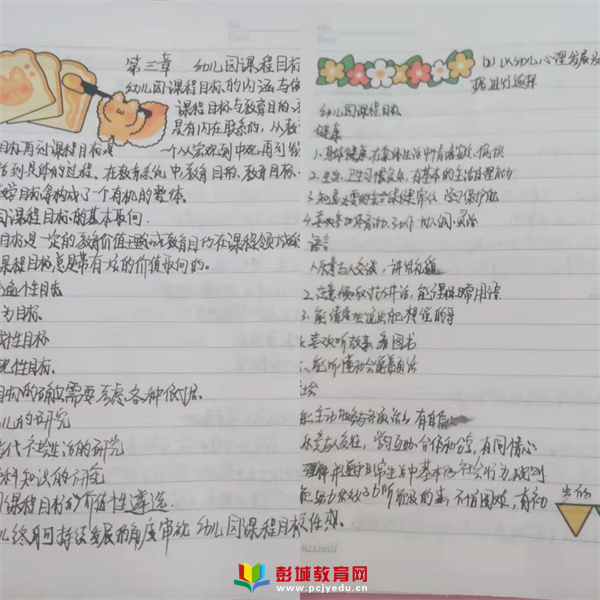 第三章 幼儿园课程目标
幼儿园课程目标的内涵与依
课程目标与教育目的、
是有内在联系的,从教
目标再到课程目标是 一个从宏观到中观再到
到具体的过程。在教育系统中教育目的、教育目标、
目标等构成了个有机的整体。
园课程目标的基本取向
目标是一定的教育价值
课程目标总是带有一定的价值取向的。
普遍性目标
为目标
性目标
性目标
目标的确定需要考虑各种依据
儿的研究
当代社会生活的研究
学科知识的研究
园课程目标的价值性
从终身可持续发展的角度审视幼儿园课程目标
幼儿心理发展
进行选择
幼儿园课程目标
健康
1.身体健康,在集体生活中情绪安定、愉快
2.生活、卫生习惯良好,有基本的生活自理能力
3.知道必要的安全保健常识,学习保护自己
4.喜欢体育活动,动作协调、灵活
语言
1.乐意与人交谈,讲话礼貌
2.注意倾听对方讲话,能理解日常用语
3.能清楚地说出自己想说的事
4.喜欢听故事、看图书
5.能听懂和会说普通话
主动地参与各项活动,有自信
乐意与人交往,学习互助、合作和分享,有同情心
理解并遵守日常生活中基本的社会行为规则
能努力做好力所能及的事,不怕困难,有初
Maxleaf
彭城教育网
www.pcjyedu.cn